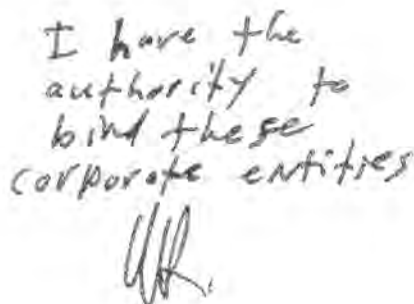 I have the
authority to
bind these
corporate entities